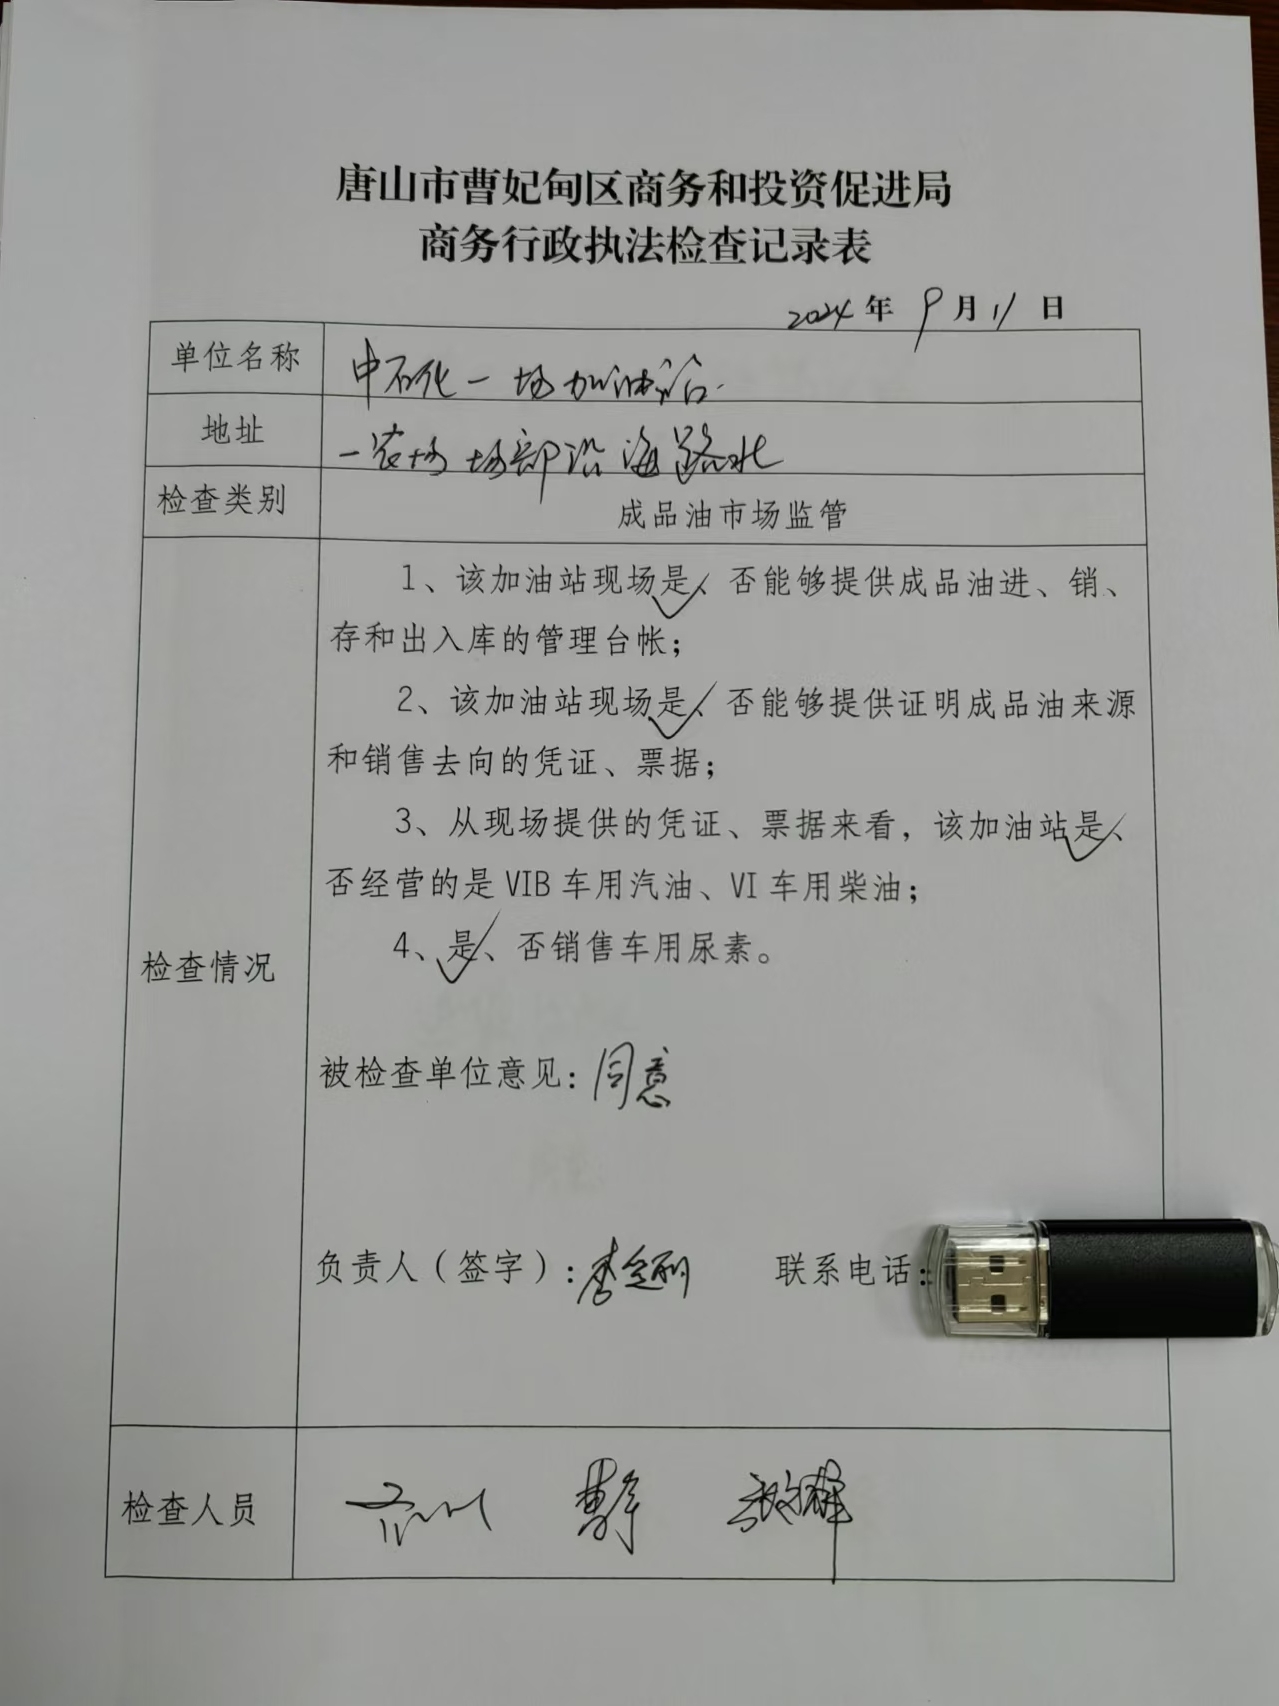 唐山市曹妃甸区商务和投资促进局
商务行政执法检查记录表
2024年9月11日
单位名称 中石化一场加油站
地址 一农场场部沿海路北
检查类别 成品油市场监管
1、该加油站现场是、否能够提供成品油进、销、
存和出入库的管理台帐；
2、该加油站现场是、否能够提供证明成品油来源
和销售去向的凭证、票据；
3、从现场提供的凭证、票据来看，该加油站是、
否经营的是VIB车用汽油、VI车用柴油；
4、是、否销售车用尿素。
检查情况
被检查单位意见：同意
负责人（签字）： 联系电话：
检查人员